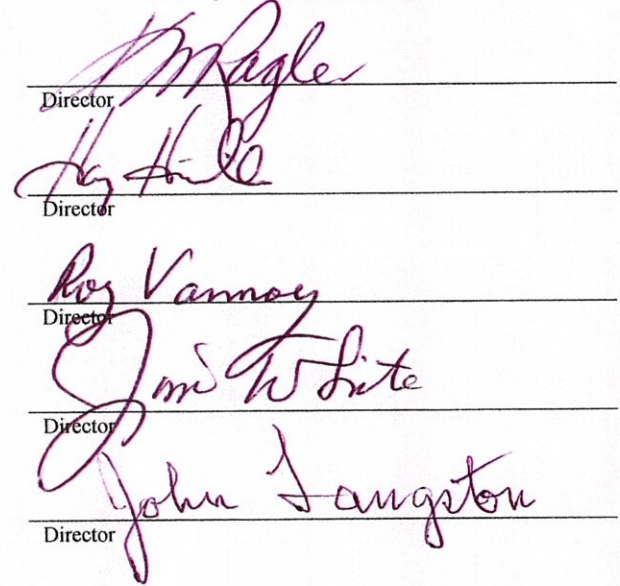 Director
Director
Roy Vannoy
Director
Jim White
Director
John Langston
Director